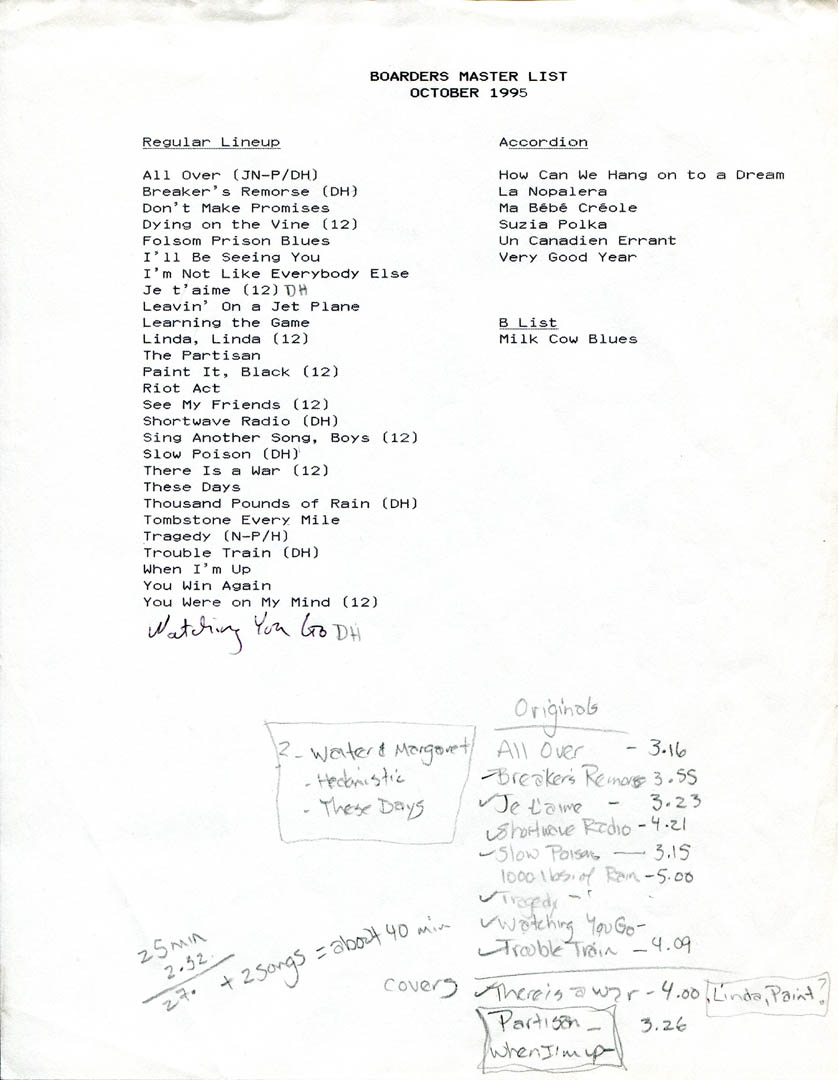 BOARDERS MASTER LIST
OCTOBER 1995
Regular Lineup
All Over (JN-P/DH)
Breaker's Remorse (DH)
Don't Make Promises
Dying on the Vine (12)
Folsom Prison Blues
I'll Be Seeing You
I'm Not Like Everybody Else
Je t'aime (12) DH
Leavin' On a Jet Plane
Learning the Game
Linda, Linda (12)
The Partisan
Paint It, Black (12)
Riot Act
See My Friends (12)
Shortwave Radio (DH)
Sing Another Song, Boys (12)
Slow Poison (DH)
There Is a War (12)
These Days
Thousand Pounds of Rain (DH)
Tombstone Every Mile
Tragedy (N-P/H)
Trouble Train (DH)
When I'm Up
You Win Again
You Were on My Mind (12)
Watching You Go DH
Accordion
How Can We Hang on to a Dream
La Nopalera
Ma Bébé Créole
Suzia Polka
Un Canadien Errant
Very Good Year
B List
Milk Cow Blues
2 - Walter & Margaret
- Hedonistic
- These Days
Originals
All Over - 3.16
✓Breaker's Remorse 3.55
✓Je t'aime - 3.23
✓Shortwave Radio - 4.21
✓Slow Poison — 3.15
1000 lbs. of Rain - 5.00
✓Tragedy -
✓Watching You Go -
✓Trouble Train - 4.09
25 min
2.52
27. + 2 songs = about 40 min
covers ✓There is a war - 4.00 Linda, Paint?
Partisan - 3.26
✓When I'm up -